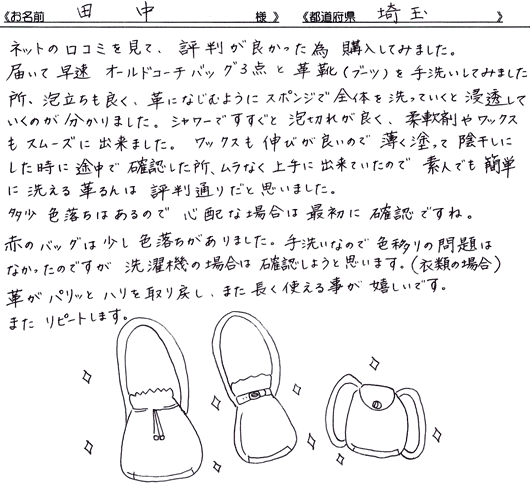 《お名前 田中 様》 《都道府県 埼玉 》
ネットの口コミを見て、評判が良かった為 購入してみました。
届いて早速 オールドコーチバッグ3点と革靴(ブーツ)を手洗いしてみました
所、泡立ちも良く、革になじむようにスポンジで全体を洗っていくと浸透して
いくのが分かりました。シャワーですすぐと泡切れが良く、柔軟剤やワックス
もスムーズに出来ました。ワックスも伸びが良いので薄く塗って陰干しに
した時に途中で確認した所、ムラなく上手に出来ていたので 素人でも簡単
に洗える革るんは 評判通りだと思いました。
多少色落ちはあるので 心配な場合は最初に確認ですね。
赤のバッグは少し色落ちがありました。手洗いなので色移りの問題は
なかったのですが 洗濯機の場合は確認しようと思います。(衣類の場合)
革がパリッとハリを取り戻し、また長く使える事が嬉しいです。
またリピートします。